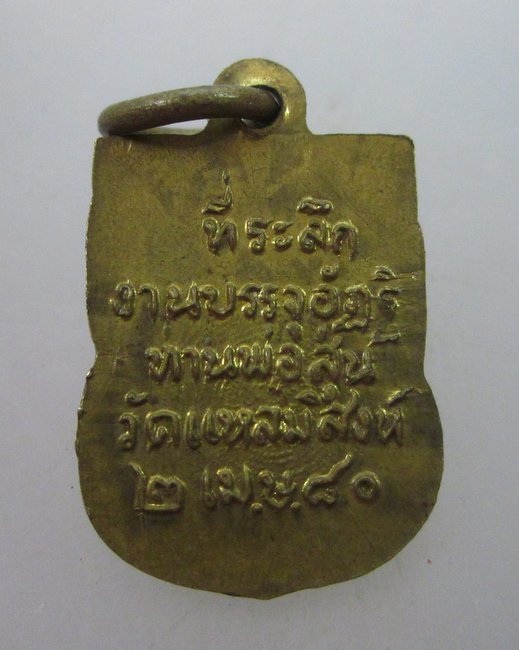 ที่ระลึก
งานบรรจุอัฏฐิ
ท่านพ่อสุ่น
วัดแหลมสิงห์
๒ เม.ษ.๘๐